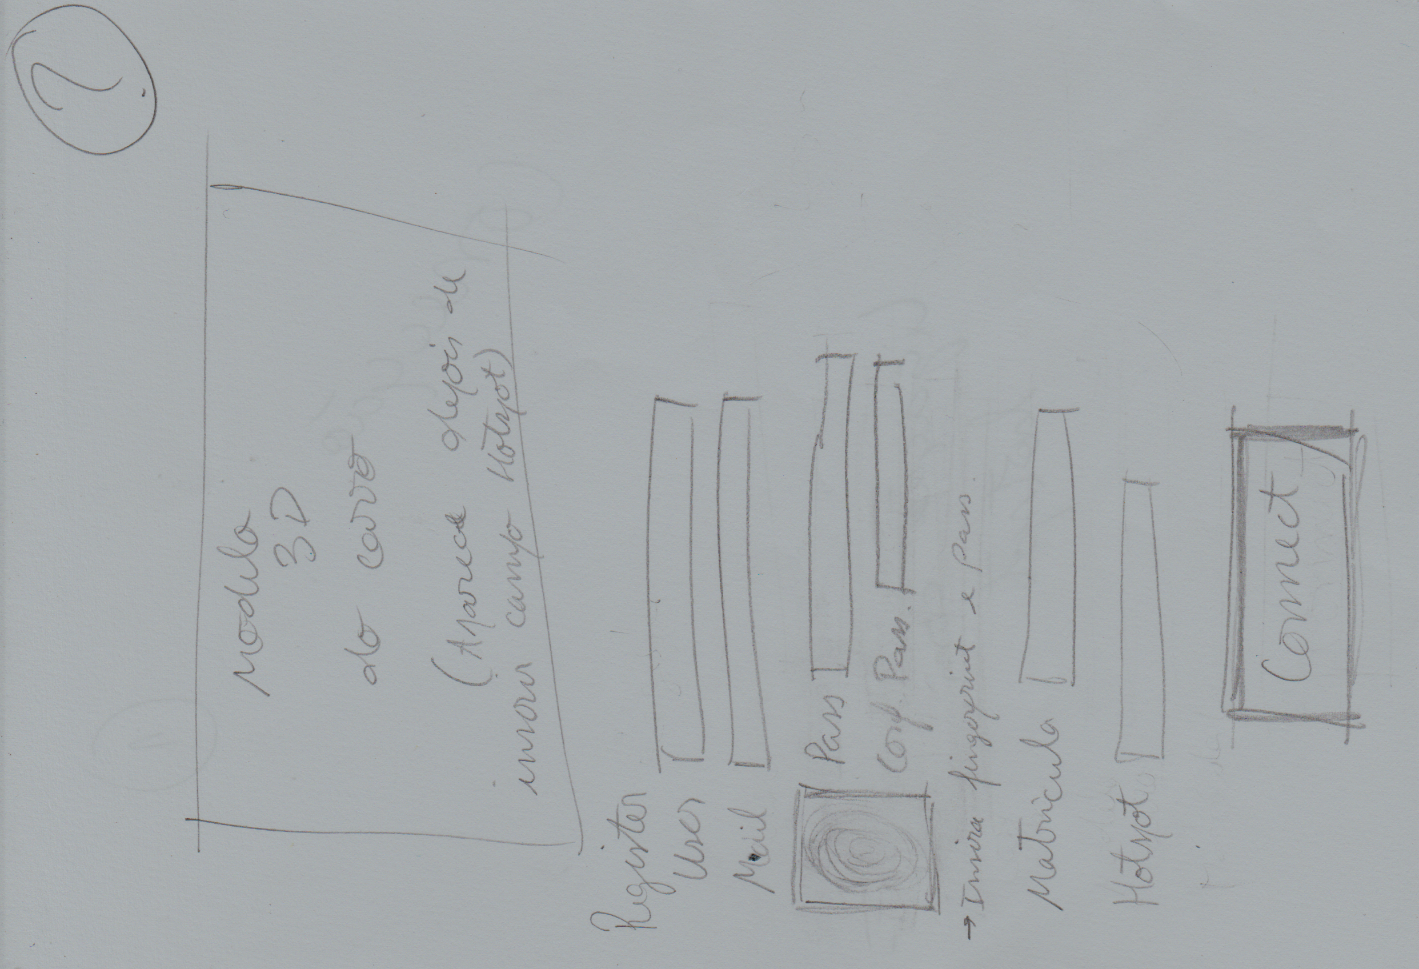 2
Modelo
3D
do carro
(Aparece depois de
inserir campo Hotspot)
Register
User
Mail
Pass
Conf. Pass.
→ Insira fingerprint e Pass.
Matricula
Hotspot
Connect